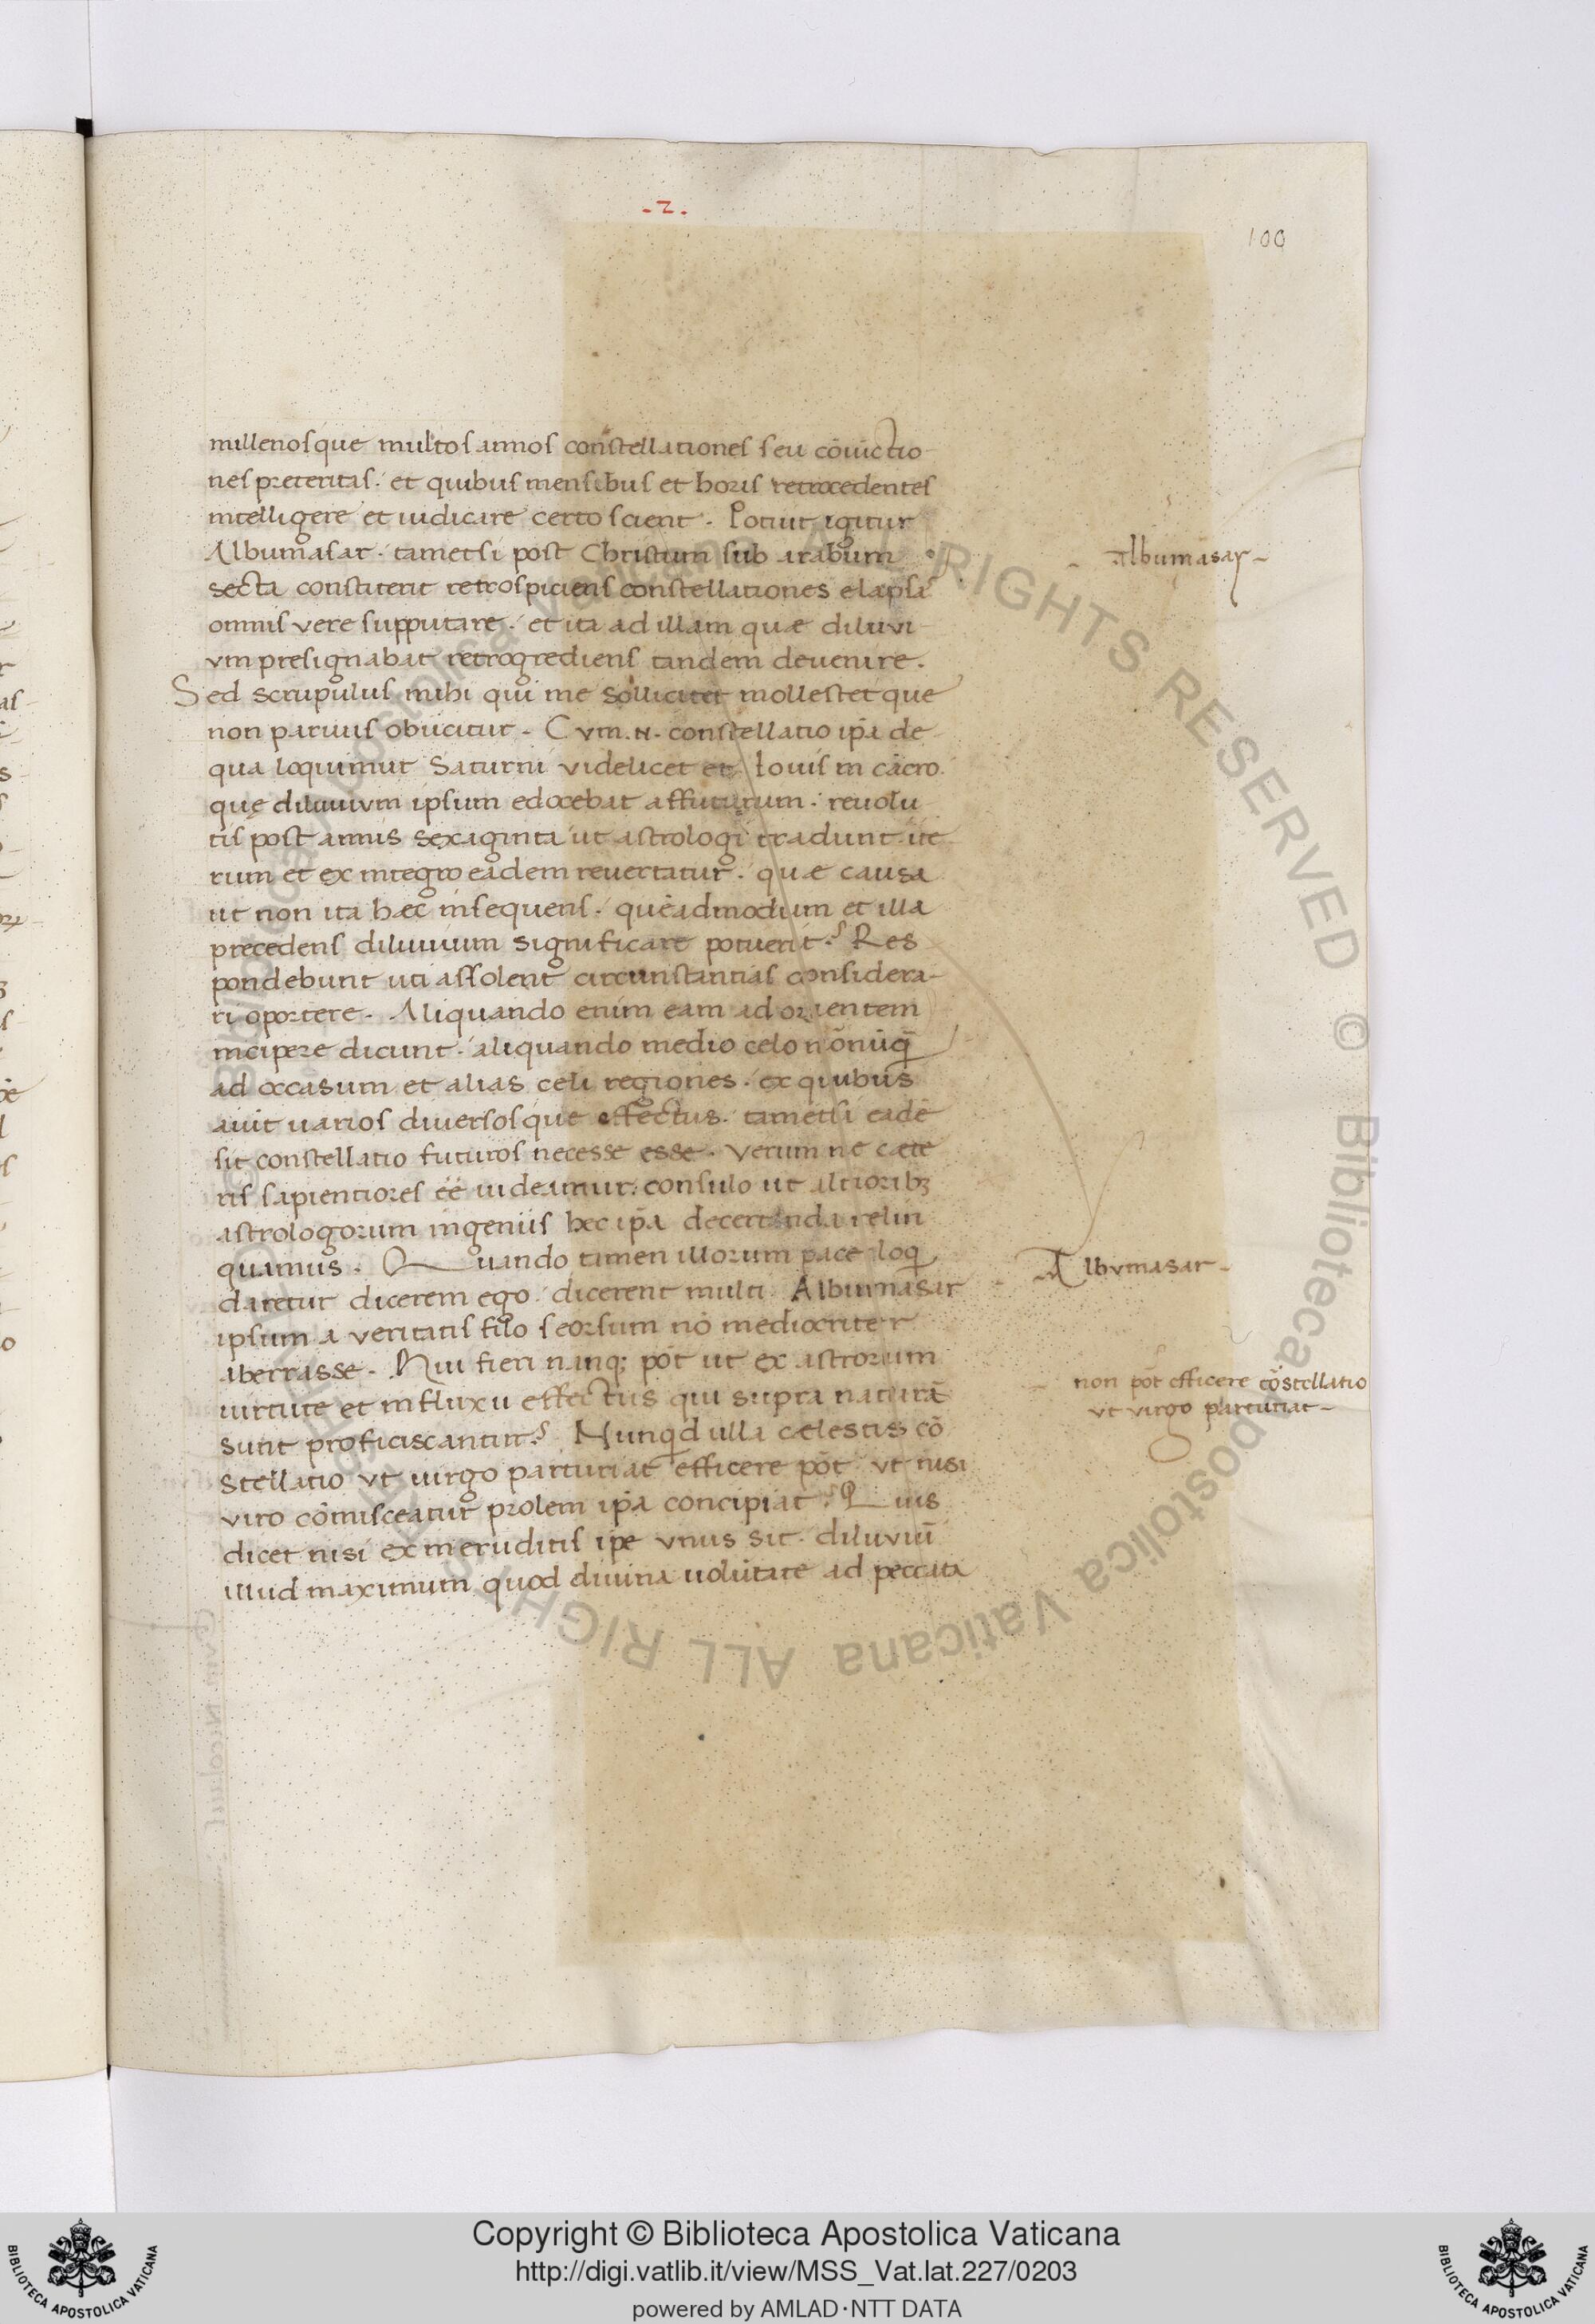 -2.
100
millenosque multos annos constellationes seu cōiūctio-
nes preteritas. et quibus mensibus et horis retrocedentes
intelligere et iudicare certo scient. Potuit igitur
Albumasar. tametsi post Christum sub arabum
secta constiterit retrospiciens constellationes elapsas
omnis vere supputare. et ita ad illam quae diluvi-
vm presignabat retrogrediens tandem deuenire.
Sed scrupulus mihi qui me sollicitet mollestet que
non paruus obiicitur. Cvm .N. constellatio ip̄a de
qua loquimur Saturni videlicet et Iouis in cācro.
quę diluuivm ipsum edocebat affuturum. reuolu-
tis post annis sexaginta ut astrologi tradunt ite-
rum et ex integro eadem reuertatur. quae causa
ut non ita haec insequens. quēadmodum et illa
precedens diluuium significare potuerit? Res
pondebunt uti assolent circunstantias considera-
ri oportere. Aliquando enim eam ad orientem
incipere dicunt. aliquando medio celo nōnūq̄
ad occasum et alias celi regiones. ex quibus
aiūt uarios diuersosque effectus. tametsi eadē
sit constellatio futuros necesse esse. Verum ne caete
ris sapientiores eē uideamur. consulo ut altiorib3
astrologorum ingeniis hec ip̄a decertanda relin
quamus. Quando tamen illorum pace loqi
daretur dicerem ego. dicerent multi Albumasar
ipsum a veritatis filo seorsum nō mediocriter
aberrasse. Qui fieri nanq; pōt ut ex astrorum
uirtute et influxu effectus qui supra naturā
sunt proficiscantur? Nunqd ulla caelestis cō
stellatio vt uirgo parturiat efficere pōt vt nisi
viro cōmisceatur prolem ip̄a concipiat? Quis
dicet nisi ex ineruditis ip̄e vnus sit. diluviū
illud maximum quod diuina uolūtate ad peccata
Albumasar-
Albvmasar-
non pōt efficere cōstellatio
vt virgo parturiat-
© Biblioteca Apostolica Vaticana ALL RIGHTS RESERVED
Copyright © Biblioteca Apostolica Vaticana
http://digi.vatlib.it/view/MSS_Vat.lat.227/0203
powered by AMLAD·NTT DATA
BIBLIOTECA APOSTOLICA VATICANA
BIBLIOTECA APOSTOLICA VATICANA